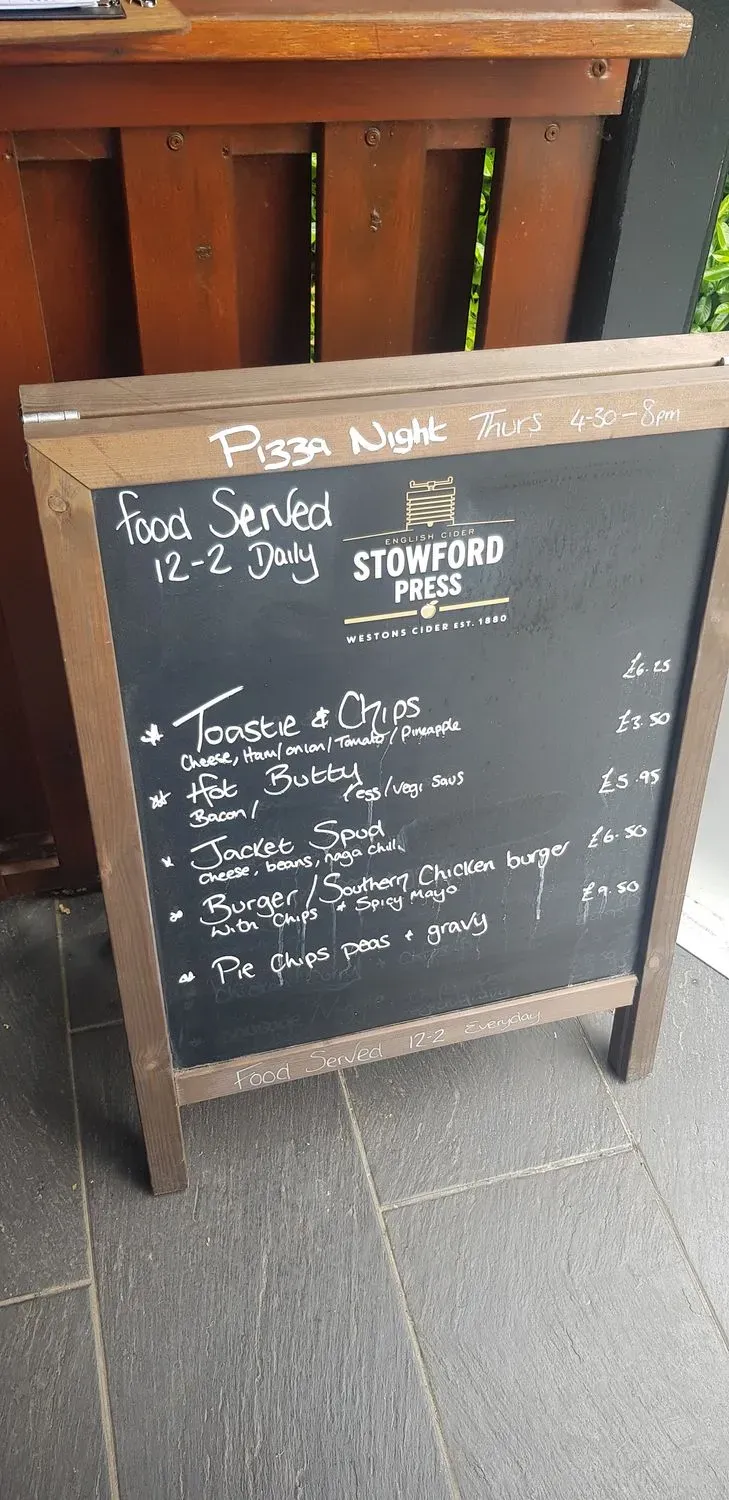 Pizza Night Thurs 4-30-8pm
Food Served
12-2 Daily
ENGLISH CIDER
STOWFORD
PRESS
WESTONS CIDER EST. 1880
Toastie & Chips £6.25
Cheese, Ham/onion/Tomato/Pineapple
Hot Butty £3.50
Bacon/ /ess/vegi Saus
Jacket Spud £5.95
cheese, beans, naga chilli
Burger/Southern Chicken burger £6.50
With Chips + Spicy Mayo
Pie Chips peas + gravy £9.50
Food Served 12-2 Everyday